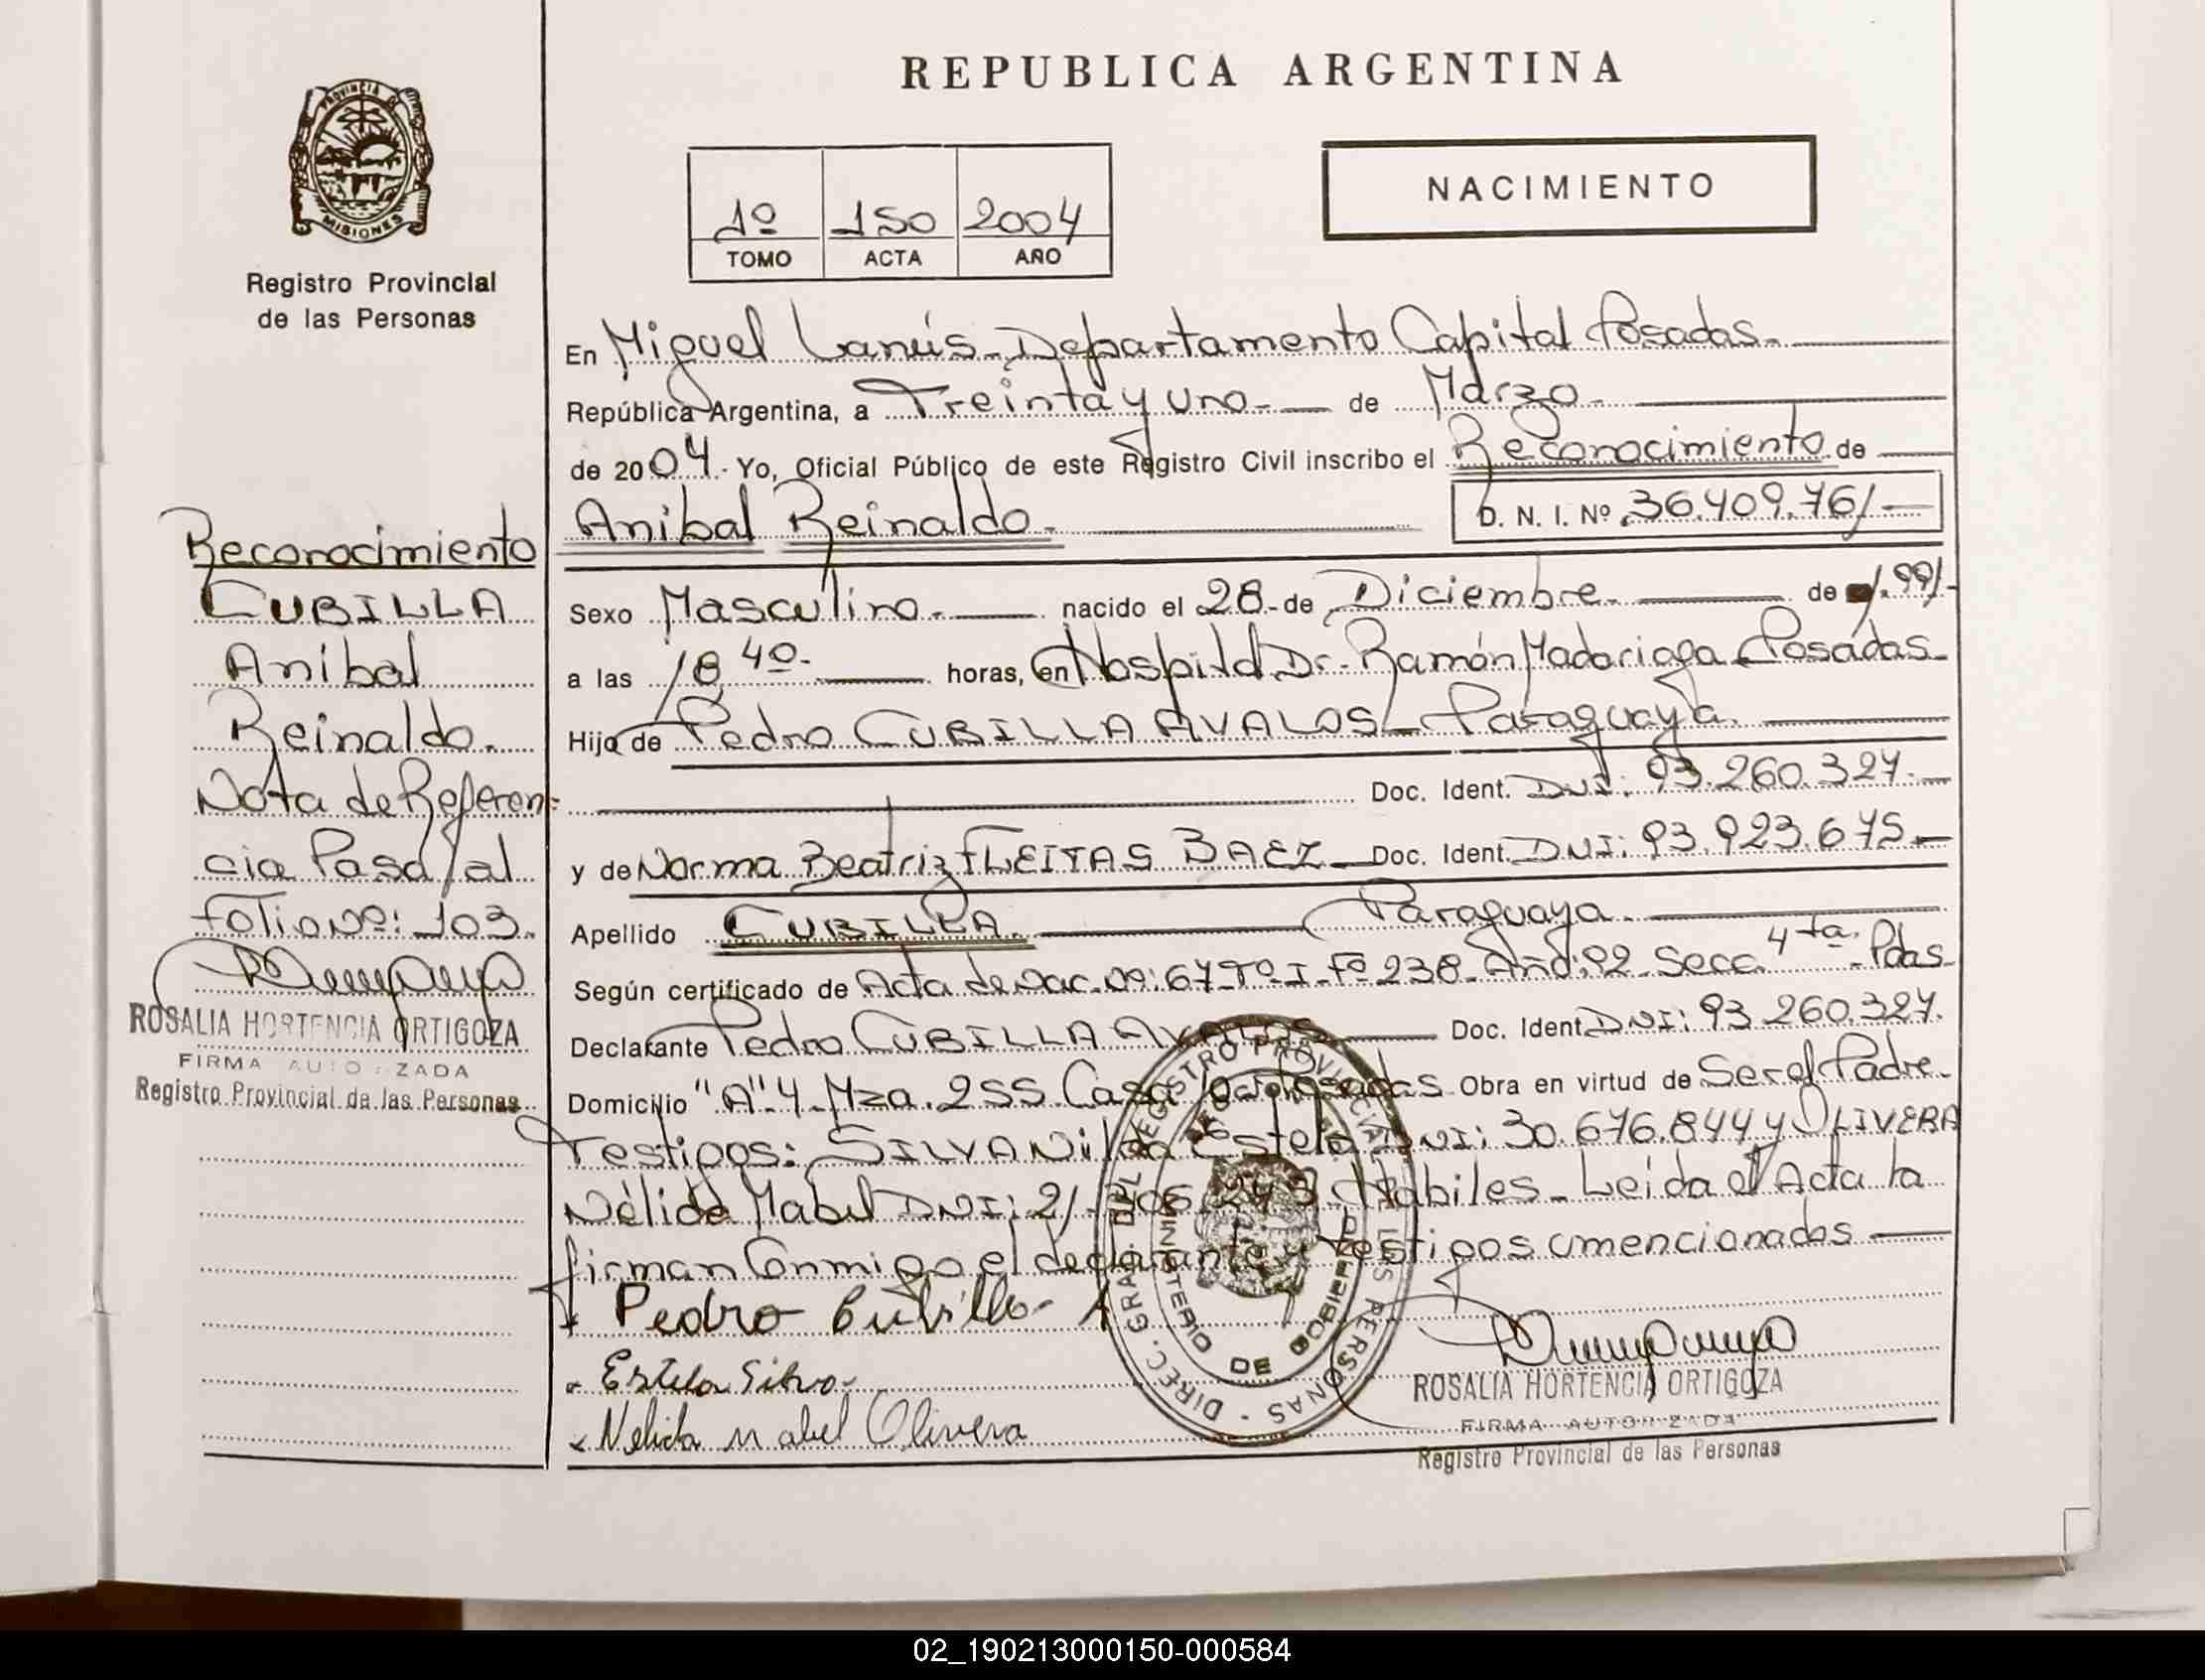 REPUBLICA ARGENTINA
PROVINCIA DE
MISIONES
Registro Provincial
de las Personas
1º 150 2004
TOMO ACTA AÑO
NACIMIENTO
En Miguel Lanús - Departamento Capital Posadas.
República Argentina, a Treinta y uno.- de Marzo.
de 2004.- Yo, Oficial Público de este Registro Civil inscribo el Reconocimiento de
Anibal Reinaldo.- D. N. I. Nº 36.409.761-
Sexo Masculino.- nacido el 28.- de Diciembre.- de 1.991-
a las 18 40.- horas, en Hospital Dr. Ramón Madariaga Posadas-
Hijo de Pedro CUBILLA AVALOS - Paraguaya.
Doc. Ident. DNI: 93.260.327.-
y de Norma Beatriz FLEITAS BAEZ - Doc. Ident. DNI: 93.923.675.-
Apellido CUBILLA. Paraguaya.
Según certificado de Acta de Nac. Nº: 67 - Tº I - Fº 238 - Año: 92 - Secc. 4ta. - Pdas
Declarante Pedro CUBILLA AVALOS Doc. Ident. DNI: 93.260.327.
Domicilio "A" 4 - Mza. 255 Casa Posadas Obra en virtud de Ser el Padre.
Testigos: SILVA Nilda Estela DNI: 30.676.844 y OLIVERA
Nélida Mabel DNI: 21. Habiles - Leida el Acta la
firman Conmigo el declarante y testigos mencionados
Pedro Cubilla A
Estela Silva
Nelida Mabel Olivera
ROSALIA HORTENCIA ORTIGOZA
FIRMA AUTORIZADA
Registro Provincial de las Personas
DIREC. GRAL. DEL REGISTRO PROVINCIAL DE LAS PERSONAS
MINISTERIO DE GOBIERNO
Reconocimiento
CUBILLA
Anibal
Reinaldo.
Nota de Referen-
cia Pasa al
folio Nº: 103.
ROSALIA HORTENCIA ORTIGOZA
FIRMA AUTORIZADA
Registro Provincial de las Personas
02_190213000150-000584